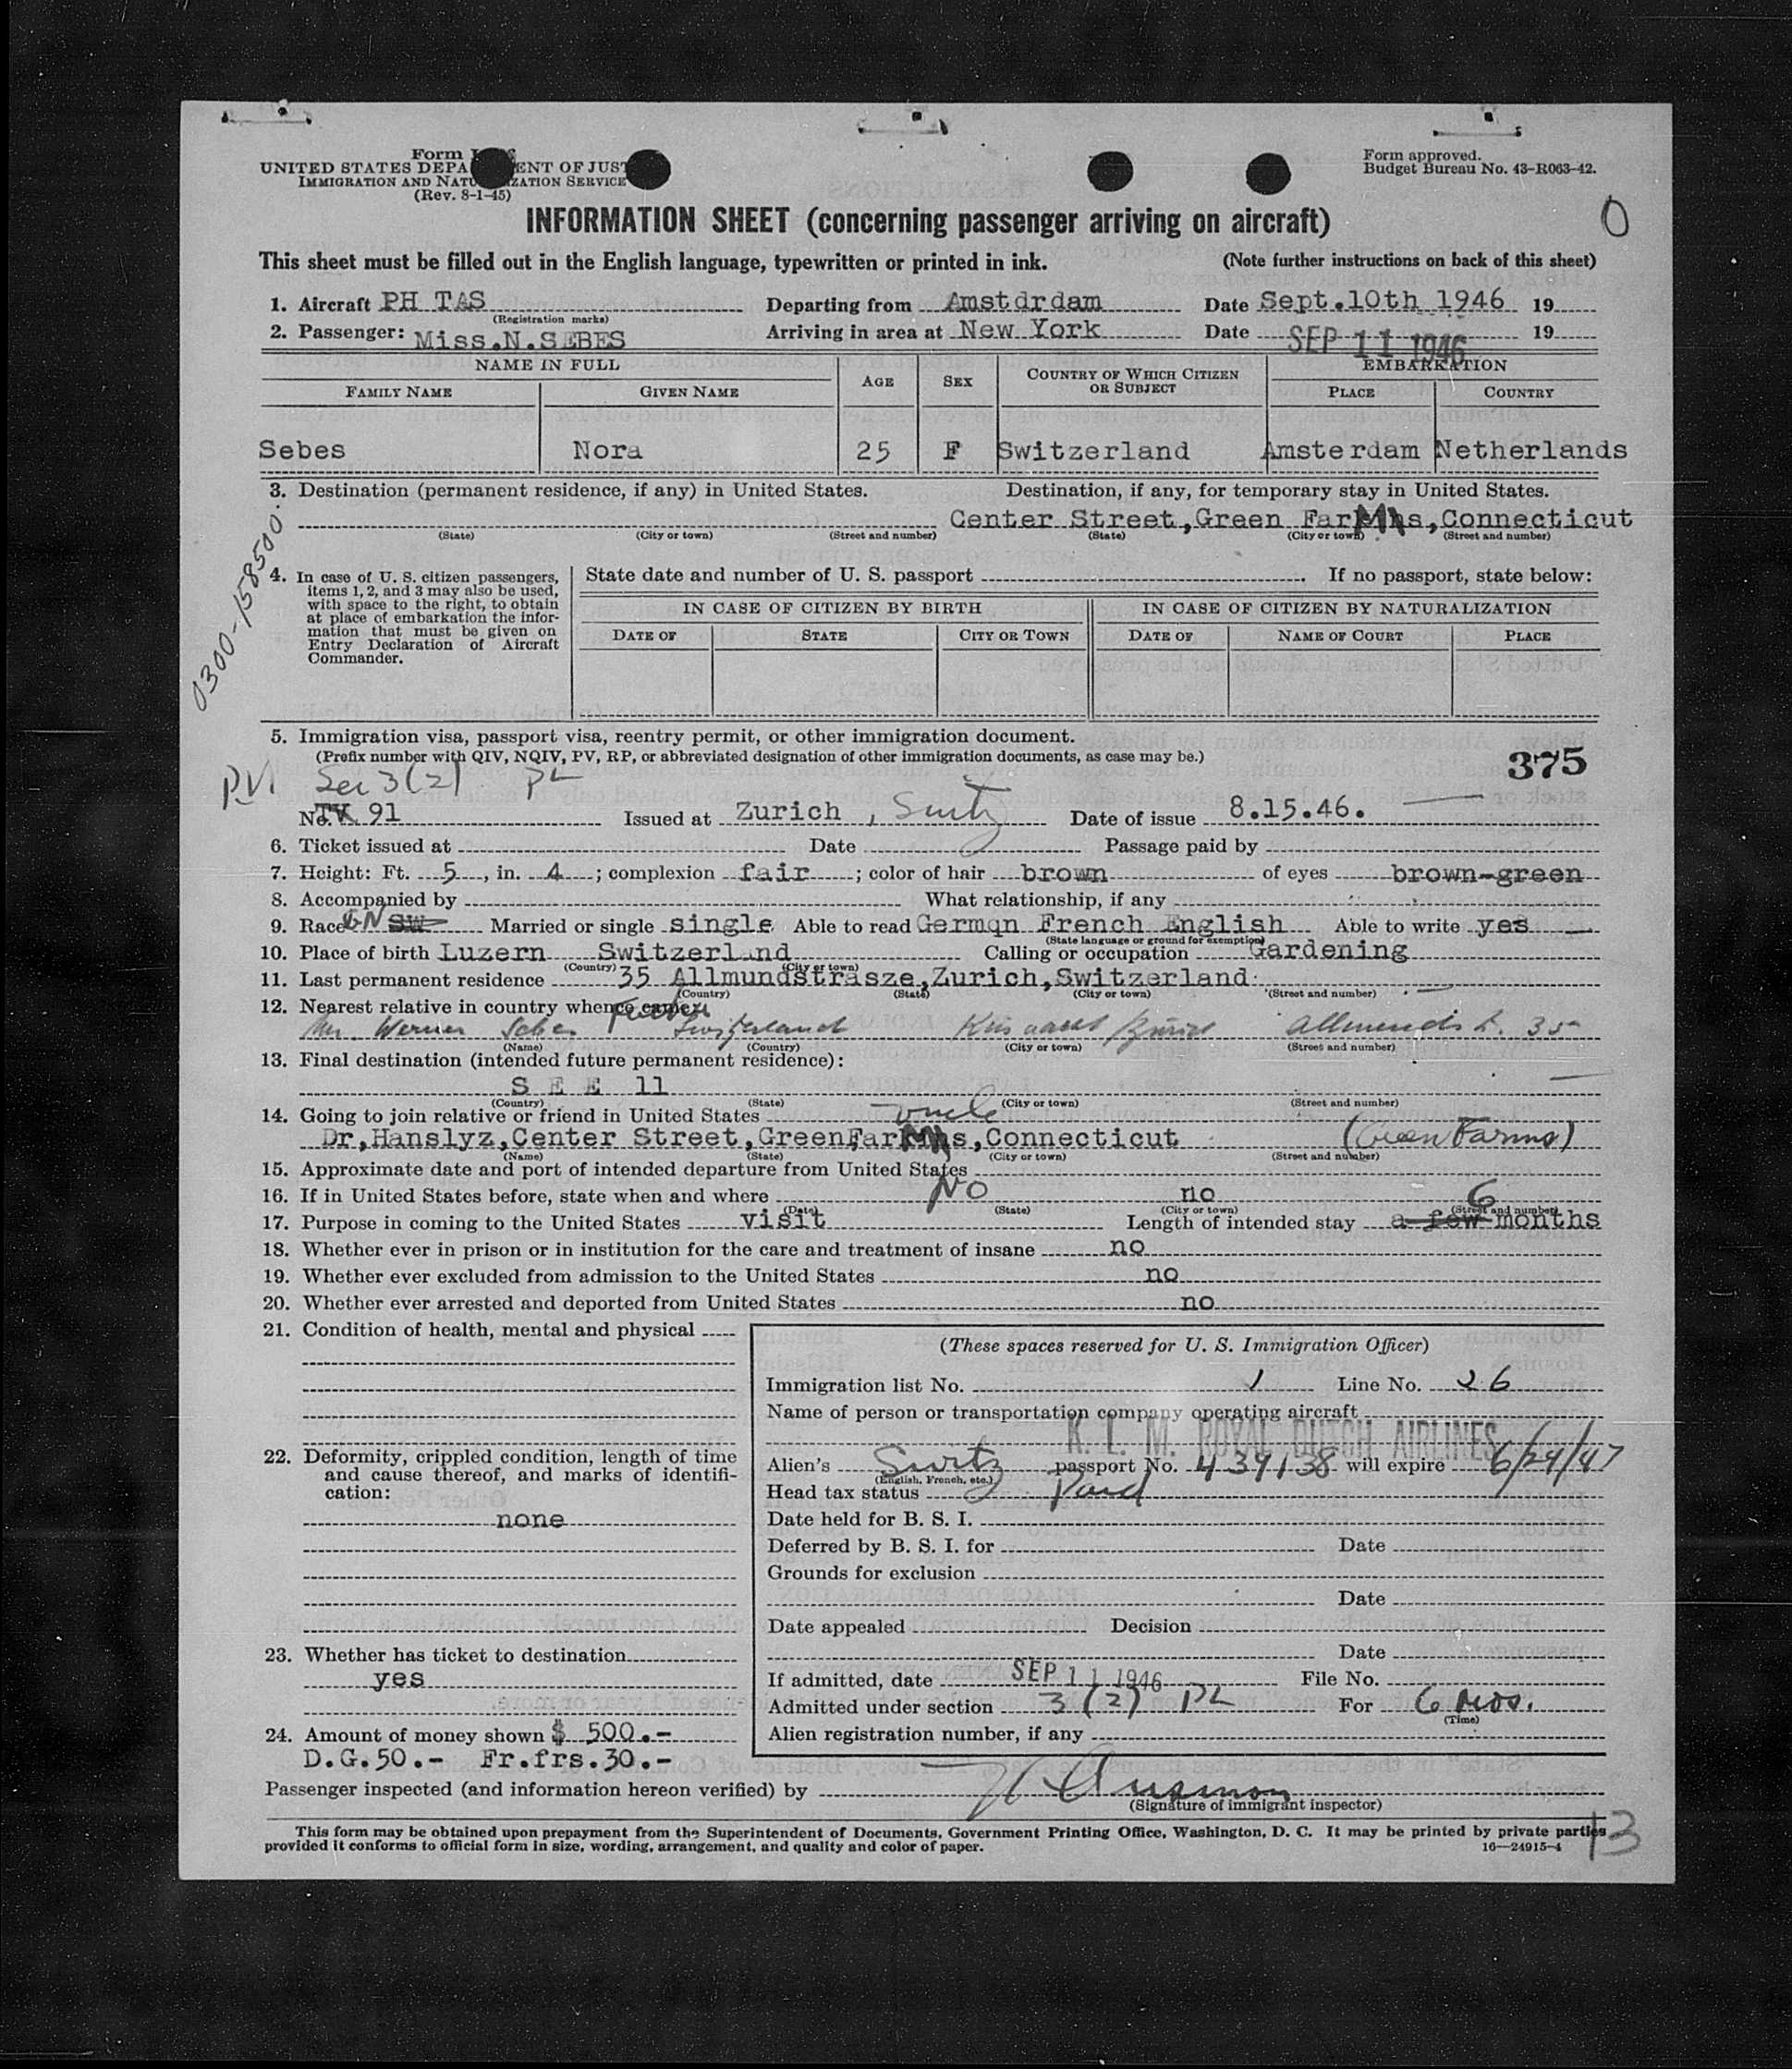 Form I-466
UNITED STATES DEPARTMENT OF JUSTICE
IMMIGRATION AND NATURALIZATION SERVICE
(Rev. 8-1-45)
Form approved.
Budget Bureau No. 43-R063-42.
INFORMATION SHEET (concerning passenger arriving on aircraft)
0
This sheet must be filled out in the English language, typewritten or printed in ink. (Note further instructions on back of this sheet)
1. Aircraft PH TAS Departing from Amstdrdam Date Sept.10th 1946 19
(Registration marks)
2. Passenger: Miss.N.SEBES Arriving in area at New York Date SEP 11 1946 19
NAME IN FULL AGE SEX COUNTRY OF WHICH CITIZEN OR SUBJECT EMBARKATION
FAMILY NAME GIVEN NAME PLACE COUNTRY
Sebes Nora 25 F Switzerland Amsterdam Netherlands
3. Destination (permanent residence, if any) in United States. Destination, if any, for temporary stay in United States.
Center Street,Green Farms,Connecticut
(State) (City or town) (Street and number) (State) (City or town) (Street and number)
0300-158500
4. In case of U. S. citizen passengers, items 1, 2, and 3 may also be used, with space to the right, to obtain at place of embarkation the information that must be given on Entry Declaration of Aircraft Commander.
State date and number of U. S. passport . If no passport, state below:
IN CASE OF CITIZEN BY BIRTH IN CASE OF CITIZEN BY NATURALIZATION
DATE OF STATE CITY OR TOWN DATE OF NAME OF COURT PLACE
5. Immigration visa, passport visa, reentry permit, or other immigration document.
(Prefix number with QIV, NQIV, PV, RP, or abbreviated designation of other immigration documents, as case may be.)
375
P.V. Sec 3(2) PL
No. TV 91 Issued at Zurich , Switz Date of issue 8.15.46.
6. Ticket issued at Date Passage paid by
7. Height: Ft. 5, in. 4; complexion fair; color of hair brown of eyes brown-green
8. Accompanied by What relationship, if any
9. Race SW Married or single single Able to read Germqn French English Able to write yes
(State language or ground for exemption)
10. Place of birth Luzern Switzerlnd Calling or occupation Gardening
(Country) (City or town)
11. Last permanent residence 35 Allmundstrasze,Zurich,Switzerland
(Country) (State) (City or town) (Street and number)
12. Nearest relative in country whence came: Father
Mr. Werner Sebes Switzerland Küsnacht / Zürich Allmendstr. 35
(Name) (Country) (City or town) (Street and number)
13. Final destination (intended future permanent residence):
S E E 11
(Country) (State) (City or town) (Street and number)
14. Going to join relative or friend in United States uncle
Dr,Hanslyz,Center Street,Green,Farms,Connecticut (Green Farms)
(Name) (State) (City or town) (Street and number)
15. Approximate date and port of intended departure from United States
16. If in United States before, state when and where NO no
(Date) (State) (City or town) (Street and number)
17. Purpose in coming to the United States visit Length of intended stay a few 6 months
18. Whether ever in prison or in institution for the care and treatment of insane no
19. Whether ever excluded from admission to the United States no
20. Whether ever arrested and deported from United States no
21. Condition of health, mental and physical
22. Deformity, crippled condition, length of time and cause thereof, and marks of identification:
none
23. Whether has ticket to destination
yes
24. Amount of money shown $ 500.-
D.G.50.- Fr.frs.30.-
(These spaces reserved for U. S. Immigration Officer)
Immigration list No. 1 Line No. 26
Name of person or transportation company operating aircraft
K. L. M. ROYAL DUTCH AIRLINES
Alien's Switz passport No. 439138 will expire 6/24/47
(English, French, etc.)
Head tax status Paid
Date held for B. S. I.
Deferred by B. S. I. for Date
Grounds for exclusion
Date
Date appealed Decision
Date
If admitted, date SEP 11 1946 File No.
Admitted under section 3(2) PL For 6 mos.
(Time)
Alien registration number, if any
Passenger inspected (and information hereon verified) by
(Signature of immigrant inspector)
This form may be obtained upon prepayment from the Superintendent of Documents, Government Printing Office, Washington, D. C. It may be printed by private parties
provided it conforms to official form in size, wording, arrangement, and quality and color of paper. 16—24915-4
13